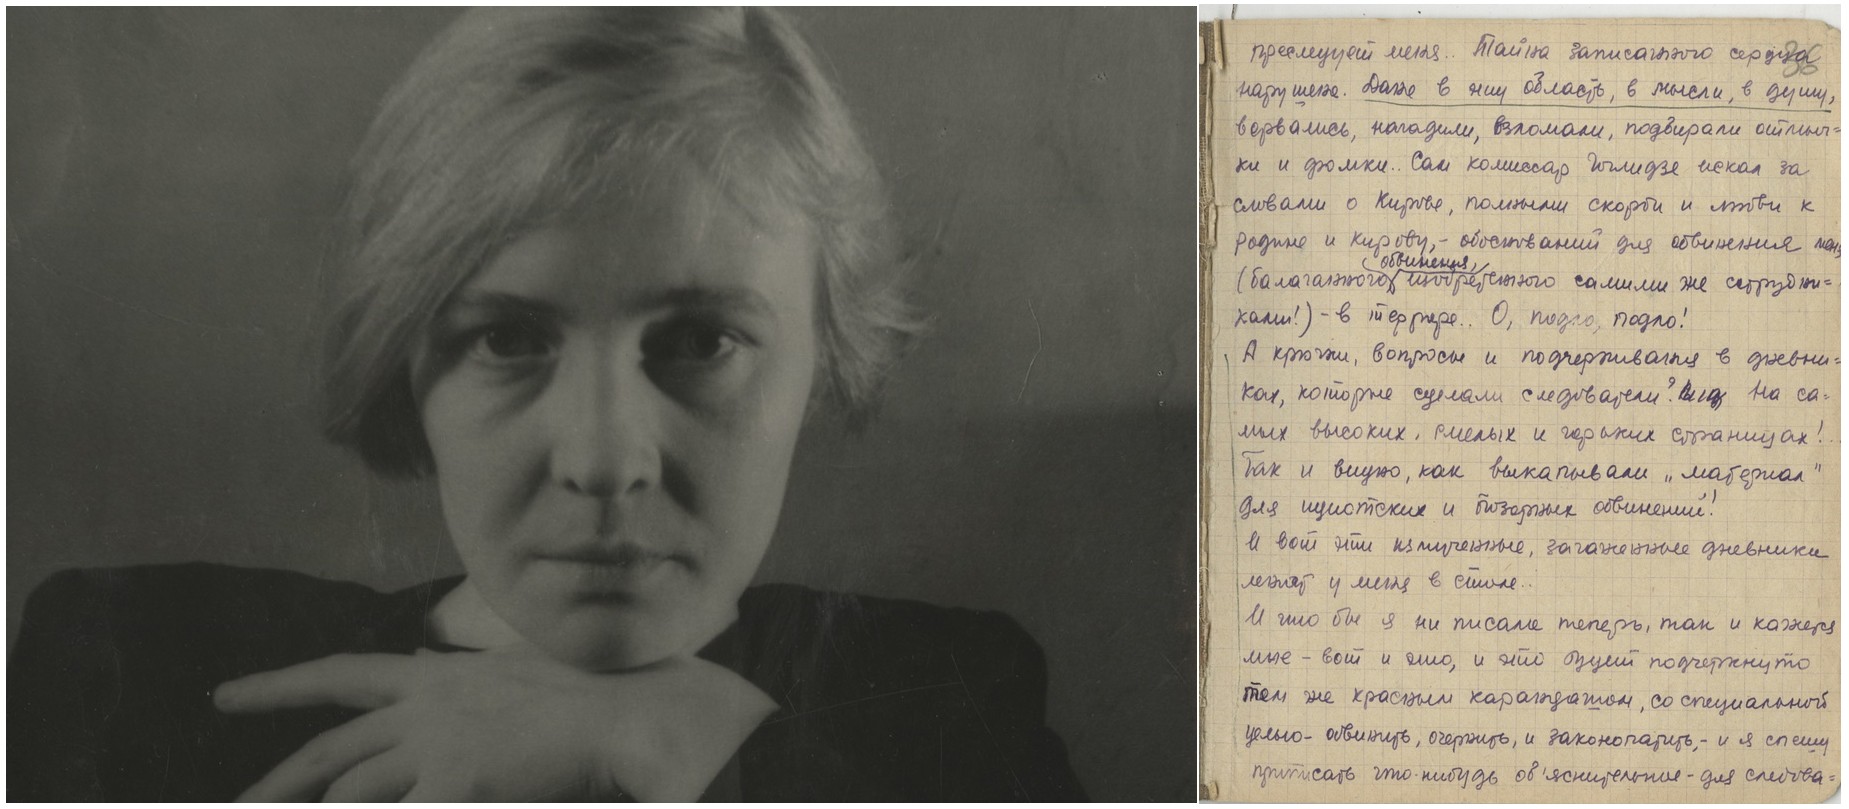 преследует меня.. Тайна записанного сердца
36
нарушена. Даже в эту область, в мысли, в душу,
ворвались, нагадили, взломали, подбирали отмыч=
ки и фомки.. Сам комиссар Гоглидзе искал за
словами о Кирове, полными скорби и любви к
родине и Кирову, - обоснований для обвинения меня
обвинения,
(балаганного, изобретенного самими же сотрудни=
ками!) - в терроре.. О, подло, подло!
А крючки, вопросы и подчеркивания в дневни=
ках, которые сделали следователи? На са=
мых высоких, смелых и горьких страницах!..
Так и видно, как выкапывали „материал"
для идиотских и позорных обвинений!
И вот эти измученные, загаженные дневники
лежат у меня в столе..
И что бы я ни писала теперь, так и кажется
мне - вот и это, и это будет подчеркнуто
тем же красным карандашом, со специальной
целью - обвинить, очернить, и законопатить, - и я спешу
приписать что-нибудь об'яснительное - для следова=